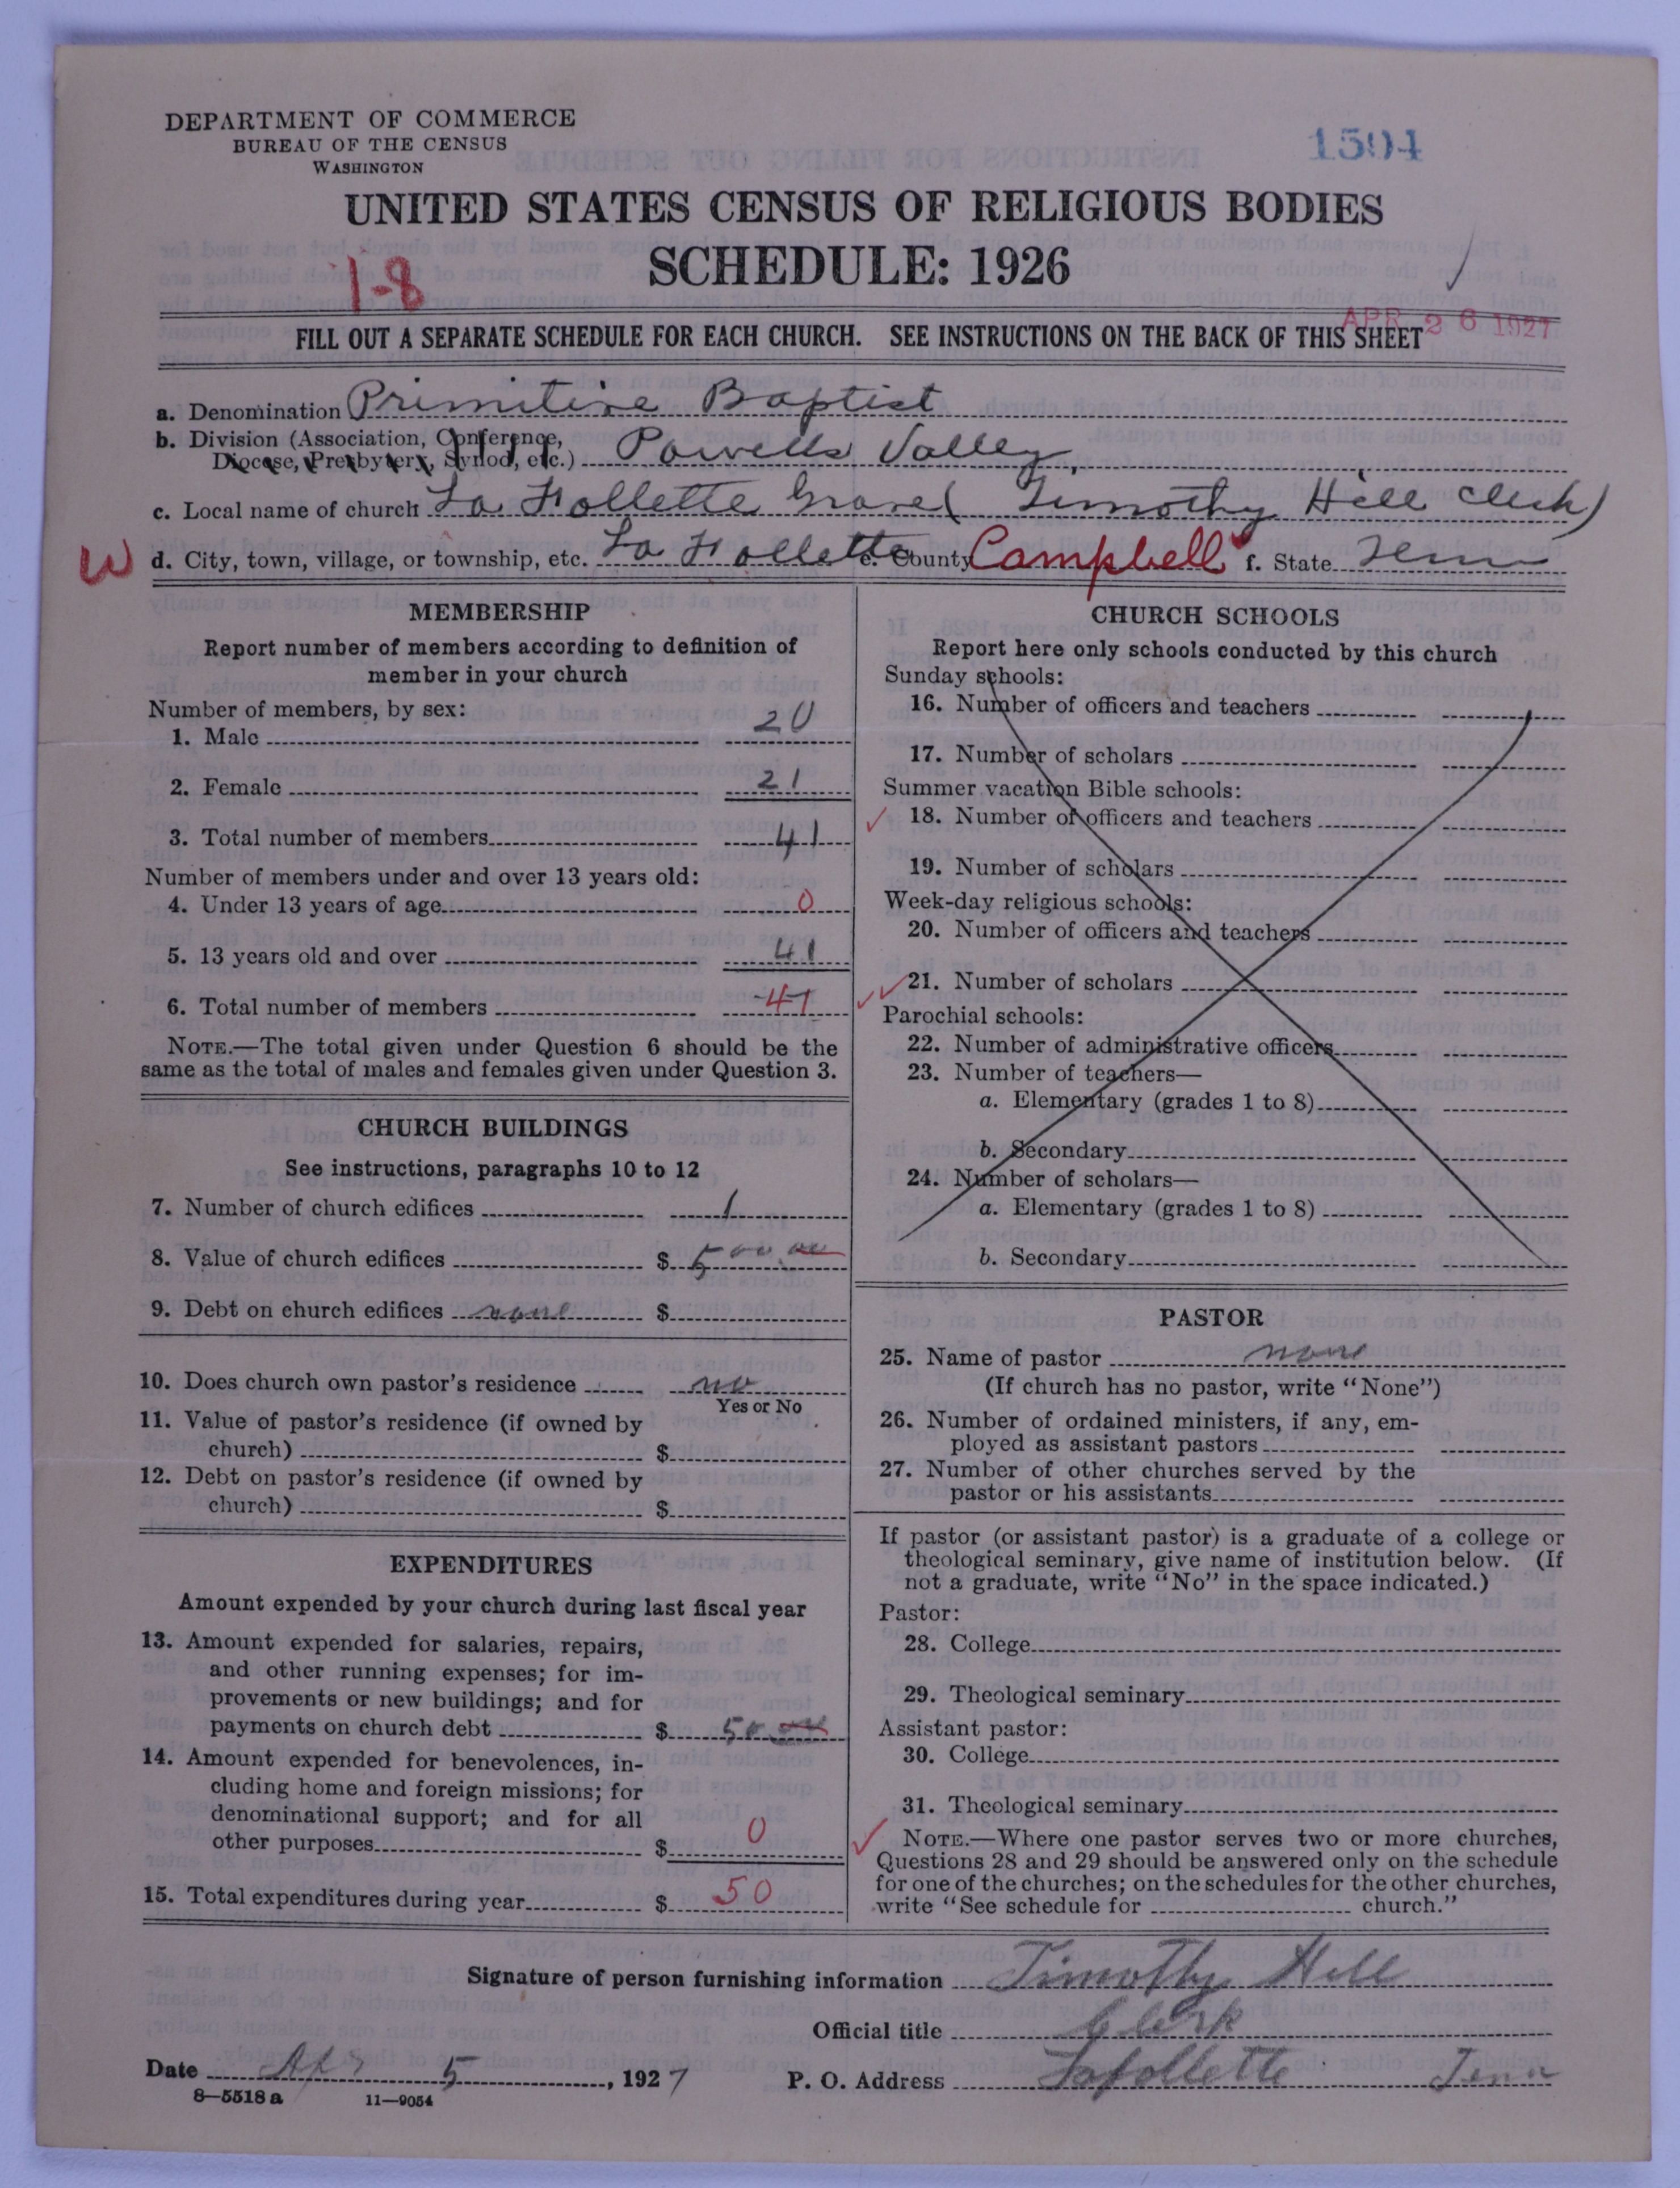 DEPARTMENT OF COMMERCE
BUREAU OF THE CENSUS
WASHINGTON
1594
UNITED STATES CENSUS OF RELIGIOUS BODIES
SCHEDULE: 1926
1-8
APR 26 1927
FILL OUT A SEPARATE SCHEDULE FOR EACH CHURCH. SEE INSTRUCTIONS ON THE BACK OF THIS SHEET
a. Denomination Primitive Baptist
b. Division (Association, Conference,
Diocese, Presbytery, Synod, etc.) Powells Valley,
c. Local name of church La Follette (Timothy Hill Clerk)
W d. City, town, village, or township, etc. La Follette e. County Campbell f. State Tenn
MEMBERSHIP
Report number of members according to definition of
member in your church
Number of members, by sex:
1. Male 20
2. Female 21
3. Total number of members 41
Number of members under and over 13 years old:
4. Under 13 years of age 0
5. 13 years old and over 41
6. Total number of members 41
NOTE.—The total given under Question 6 should be the
same as the total of males and females given under Question 3.
CHURCH BUILDINGS
See instructions, paragraphs 10 to 12
7. Number of church edifices 1
8. Value of church edifices $ 500.00
9. Debt on church edifices none $
10. Does church own pastor's residence no
Yes or No
11. Value of pastor's residence (if owned by
church) $
12. Debt on pastor's residence (if owned by
church) $
EXPENDITURES
Amount expended by your church during last fiscal year
13. Amount expended for salaries, repairs,
and other running expenses; for im-
provements or new buildings; and for
payments on church debt $ 50.00
14. Amount expended for benevolences, in-
cluding home and foreign missions; for
denominational support; and for all
other purposes $ 0
15. Total expenditures during year $ 50
CHURCH SCHOOLS
Report here only schools conducted by this church
Sunday schools:
16. Number of officers and teachers
17. Number of scholars
Summer vacation Bible schools:
18. Number of officers and teachers
19. Number of scholars
Week-day religious schools:
20. Number of officers and teachers
21. Number of scholars
Parochial schools:
22. Number of administrative officers
23. Number of teachers—
a. Elementary (grades 1 to 8)
b. Secondary
24. Number of scholars—
a. Elementary (grades 1 to 8)
b. Secondary
PASTOR
25. Name of pastor none
(If church has no pastor, write "None")
26. Number of ordained ministers, if any, em-
ployed as assistant pastors
27. Number of other churches served by the
pastor or his assistants
If pastor (or assistant pastor) is a graduate of a college or
theological seminary, give name of institution below. (If
not a graduate, write "No" in the space indicated.)
Pastor:
28. College
29. Theological seminary
Assistant pastor:
30. College
31. Theological seminary
NOTE.—Where one pastor serves two or more churches,
Questions 28 and 29 should be answered only on the schedule
for one of the churches; on the schedules for the other churches,
write "See schedule for church."
Signature of person furnishing information Timothy Hill
Official title Clerk
Date Apr 5, 1927 P. O. Address Lafollette Tenn
8—5518 a 11—9054